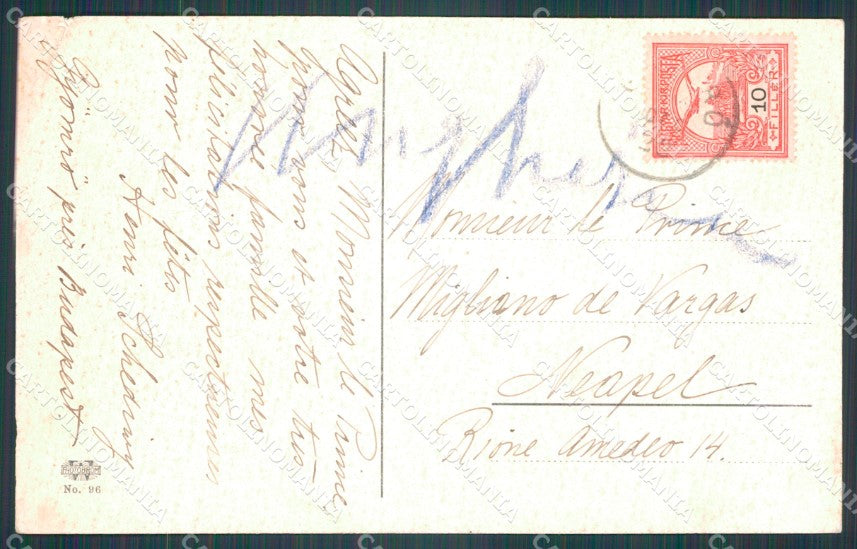 Agréez, Monsieur le Prince
pour vous et votre très
honorée famille mes
félicitations respectueuses
pour les fêtes
Henri
Gyömrő près Budapest
No. 96
MAGYAR KIR. POSTA
10
FILLÉR
Monsieur le Prince
Migliano de Vargas
Neapel
Rione Amedeo 14.
CARTOLINOMANIA